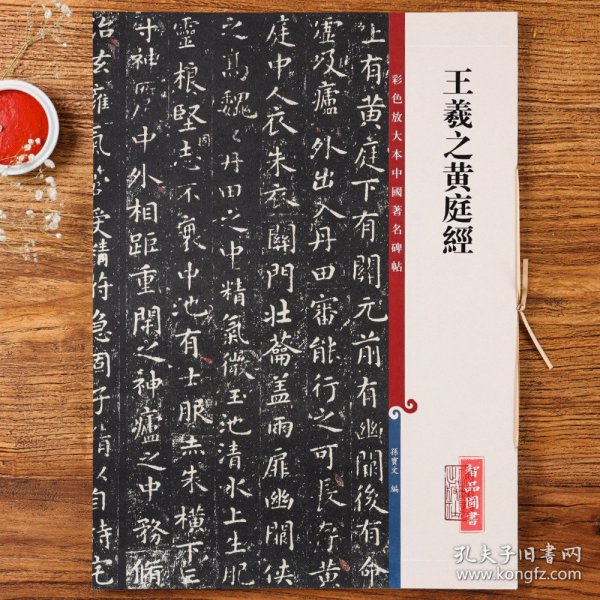 王羲之黄庭經
彩色放大本中國著名碑帖
孫寳文 編
上有黄庭下有關元前有幽闕後有命
嘘吸廬外出入丹田審能行之可長存黄
庭中人衣朱衣關門壯蘥蓋兩扉幽闕俠
之高魏〻丹田之中精氣微玉池清水上生肥
靈根堅志不衰中池有士服赤朱橫下三
固
寸神所中外相距重閉之神廬之中務脩
治玄雍氣管受精符急固子精以自持宅
智品圖書
孔夫子旧書网
www.kongfz.com